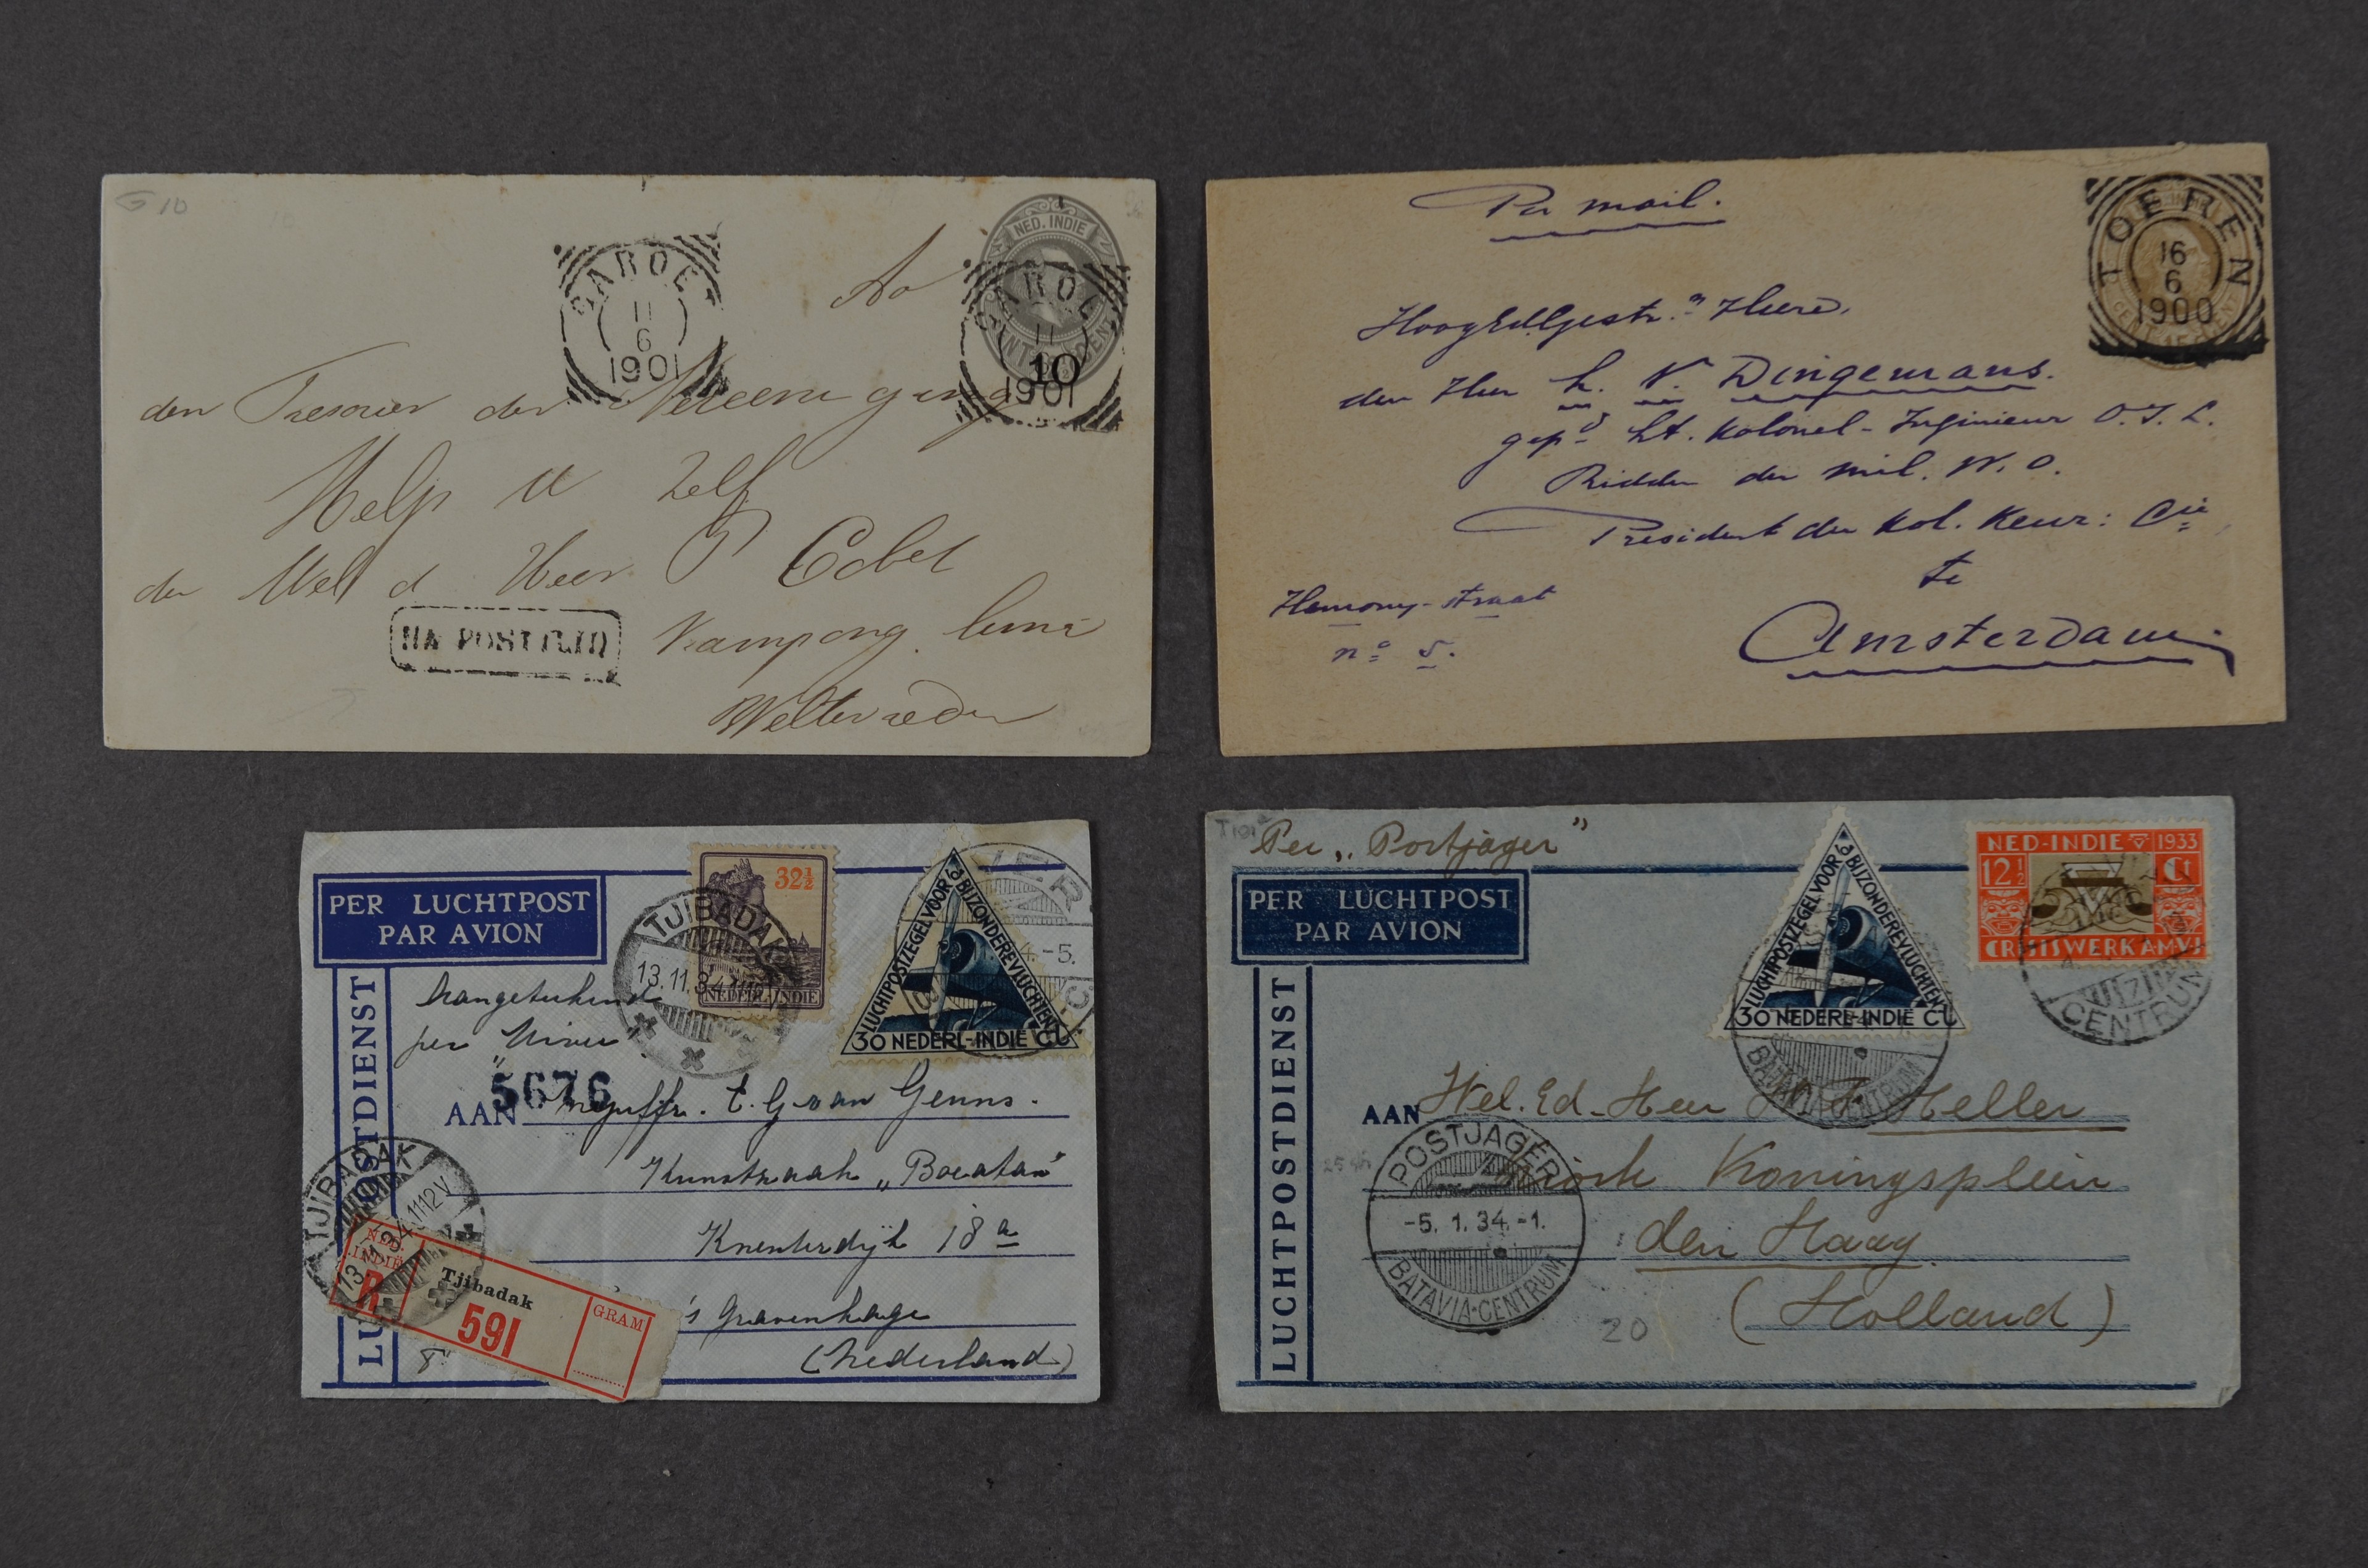 G 10
GAROET
11
6
1901
NED. INDIE
10
GAROET
11
1901
CENT
Aa
den Tresorier der Vereeniging
Help U Zelf
den Wel d Heer P Edbel
NA POSTTIJD
Kampong lima
Weltevreden
Per mail.
TOEREN
16
6
1900
CENT
HoogEdlgestr.n Heere,
den Heer L. V. Dingemans.
gepd Lt. Kolonel-Ingenieur O.I.L.
Ridder der Mil. W. O.
President der Kol. Keur: Cie
te
Amsterdam.
Hemony-straat
no 5.
PER LUCHTPOST
PAR AVION
LUCHTPOSTDIENST
32½
NEDERL-INDIE
TJIBADAK
13.11.34
LUCHTPOSTZEGEL VOOR BIJZONDERE VLUCHTEN
30 NEDERL-INDIË CT
Aangeteekend
per "Uiver"
5676
AAN Mejuffr. C. G. van Genns.
Kunstzaak "Boeatan"
Kneuterdijk 18a
's Gravenhage
(Nederland)
TJIBADAK
13.11.34 11-12V
NED. INDIË
R
Tjibadak
591
GRAM
8
Per "Postjager"
PER LUCHTPOST
PAR AVION
LUCHTPOSTDIENST
LUCHTPOSTZEGEL VOOR BIJZONDERE VLUCHTEN
30 NEDERL-INDIË CT
NED-INDIE 1933
12½ Ct
CRISISWERK A.M.V.J.
CENTRUM
BATAVIA-CENTRUM
AAN Wel. Ed. Heer Heller
Koningsplein
den Haag
(Holland)
POSTJAGER
-5. 1. 34.-1.
BATAVIA-CENTRUM
20